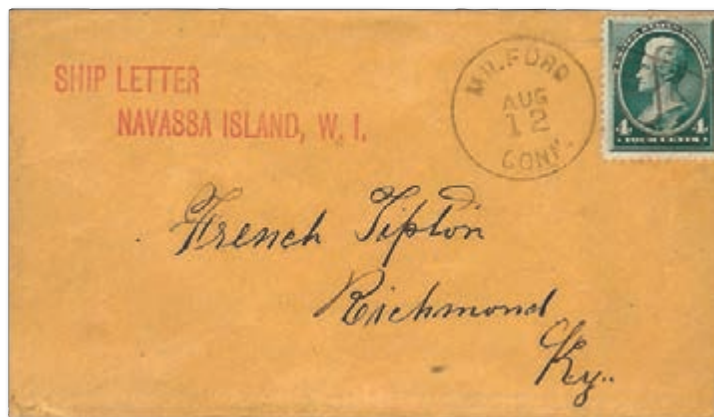 SHIP LETTER
NAVASSA ISLAND, W. I.
MILFORD
AUG
12
CONN.
4 4
FOUR CENTS
French Tipton
Richmond
Ky.